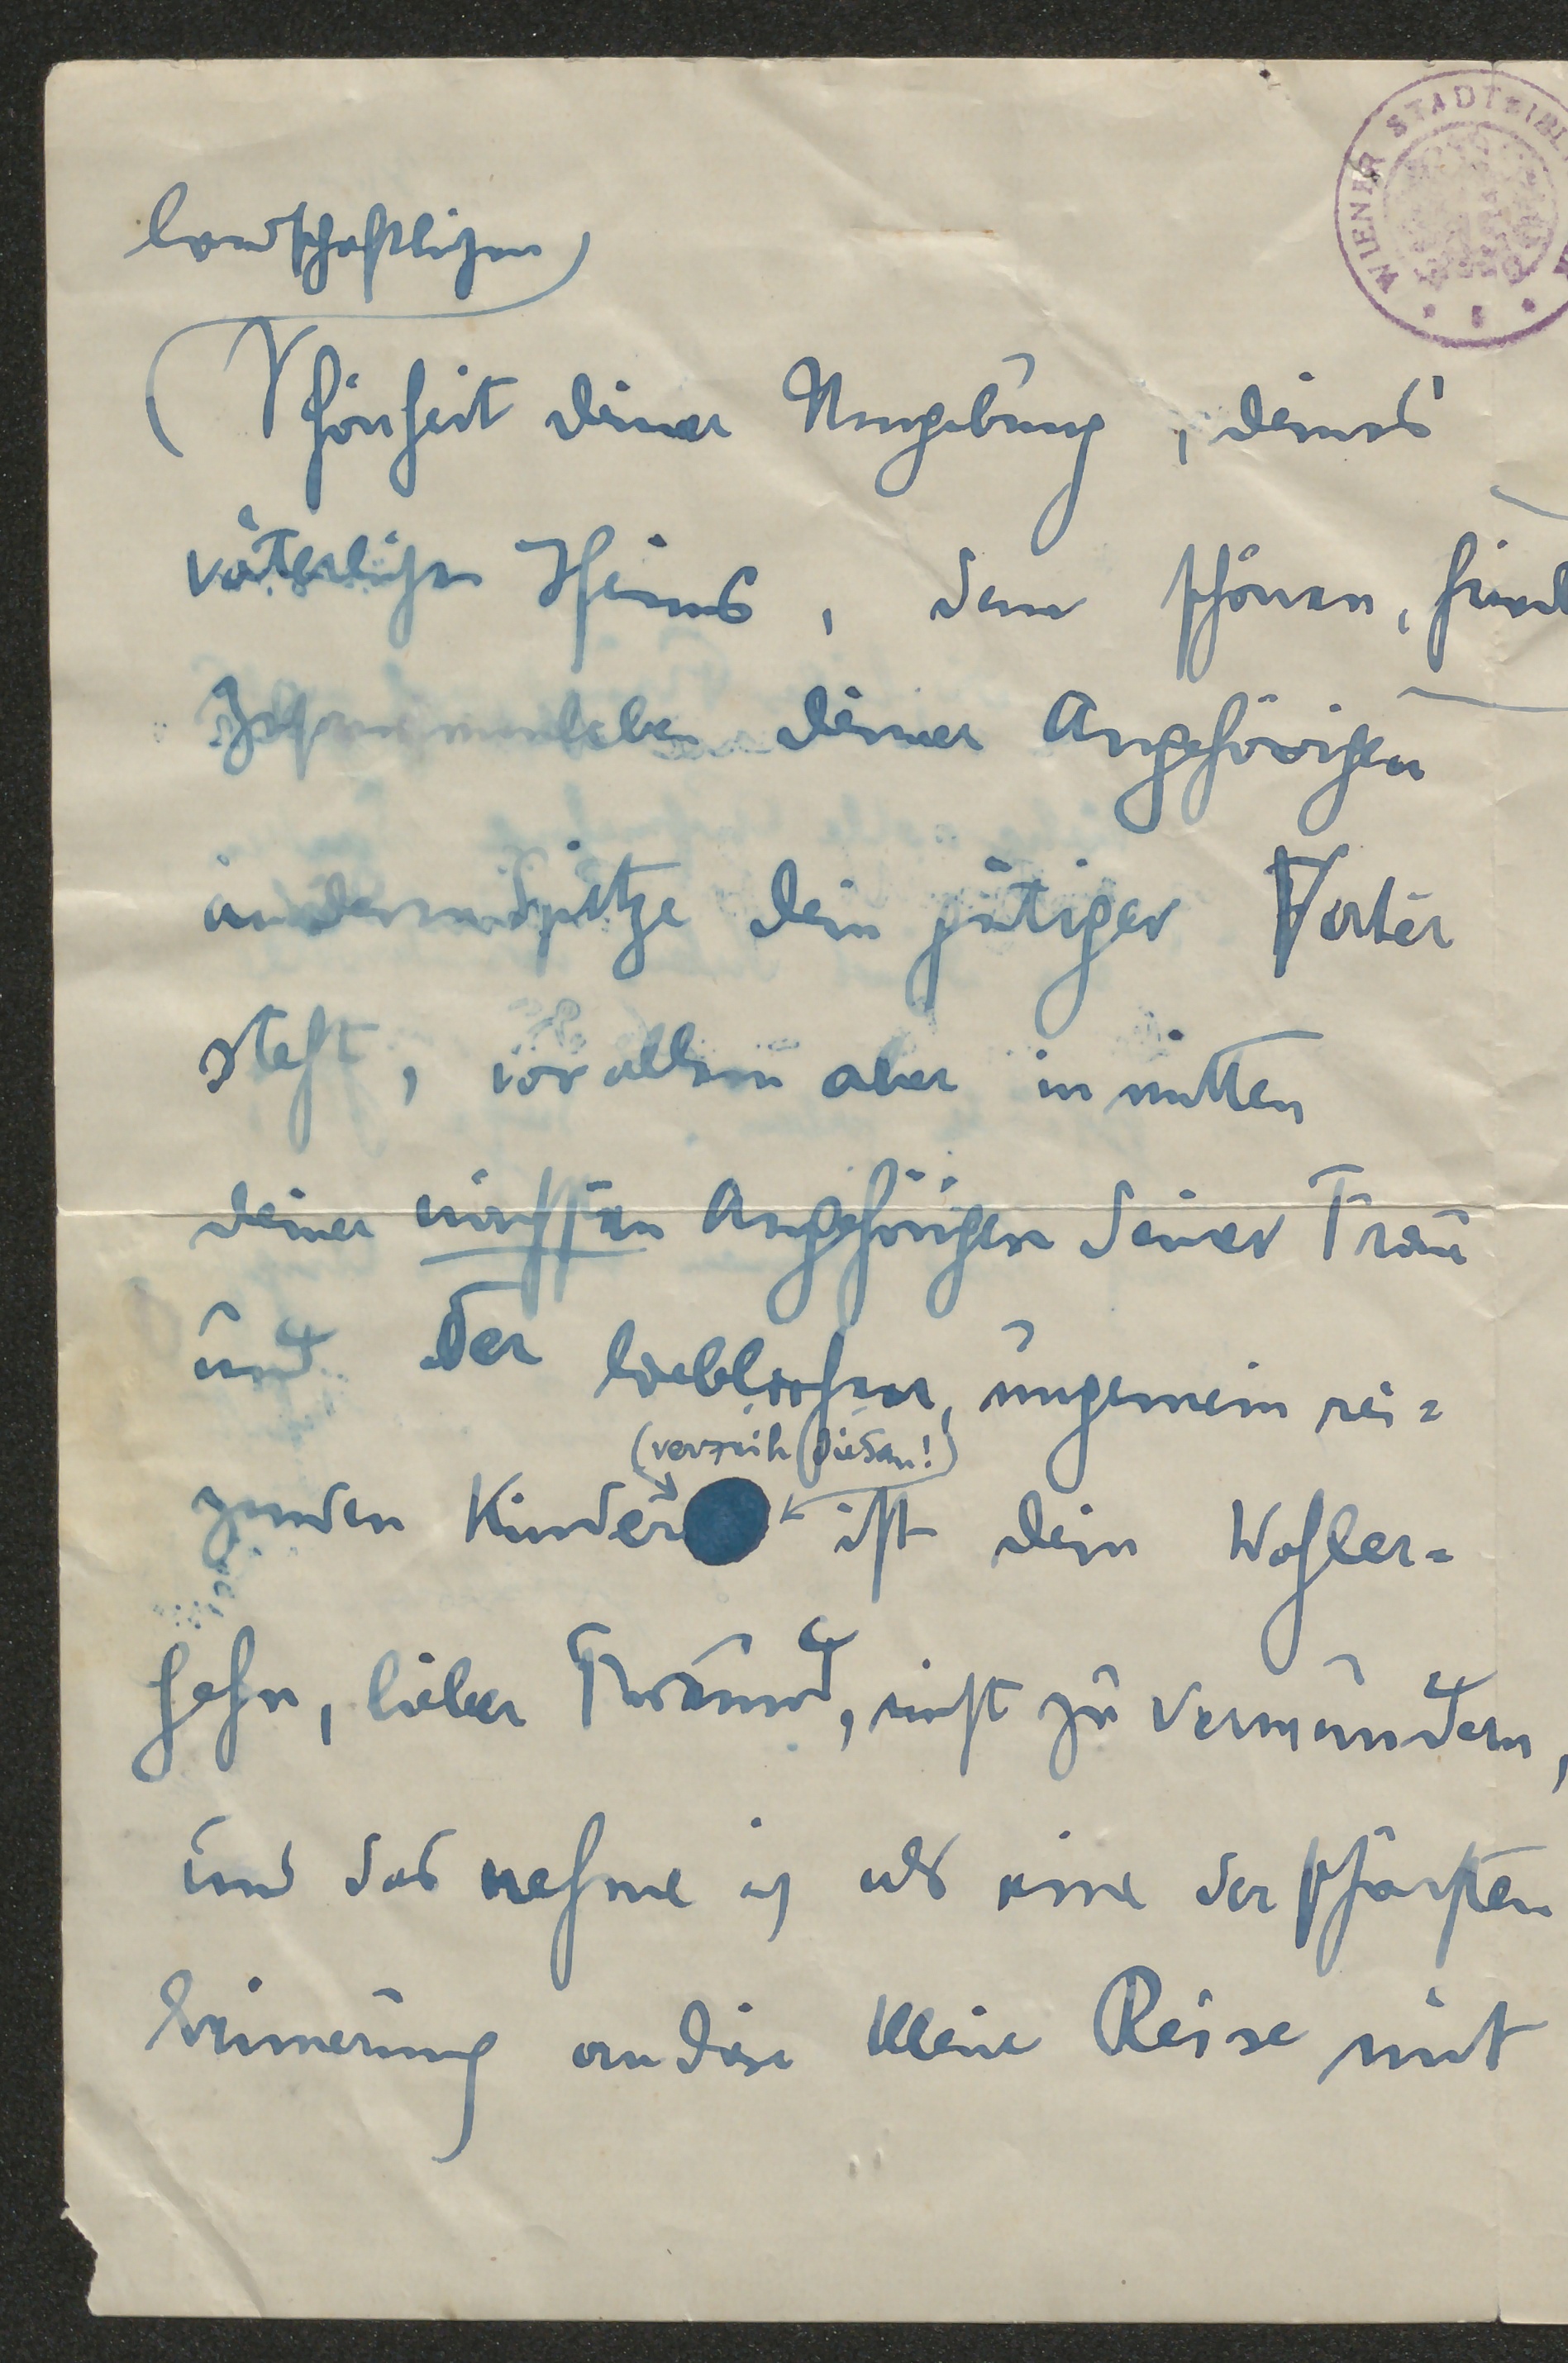 WIENER STADTBIBL
landschaftlichen
Schönheit deiner Umgebung, deines
väterlichen Heims, dem schönen, friedl
Zusammenleben deiner Angehörigen
an deren Spitze dein gütiger Vater
steht, vor allem aber in mitten
deiner nächsten Angehörigen deiner Frau
und der lieblichen, ungemein rei=
(verzeih diesen!)
zenden Kinder ist dein Wohler=
gehn, lieber Freund, nicht zu verwundern,
und das nehme ich als eine der schönsten
Erinnerung an diese kleine Reise mit